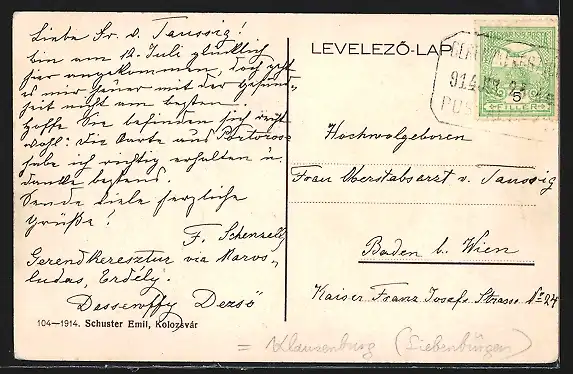 Liebe Fr. v. Taussig!
bin am 12. Juli glücklich
hier angekommen, doch geht
es mir heuer mit der Gesund-
heit nicht am besten.
Hoffe Sie befinden sich recht
wohl: die Karte aus Portorose
habe ich richtig erhalten u.
danke bestens.
Sende viele herzliche
Grüße!
F.
Gerendkeresztur via Maros-
ludas, Erdély.
Dessewffy Dezsö
104—1914. Schuster Emil, Kolozsvár
LEVELEZŐ-LAP
MAGYAR KIR. POSTA
5
FILLER
914
Hochwolgeboren
Frau Oberstabsarzt v. Taussig
Baden b. Wien
Kaiser Franz Josefs Strasse No 24
= Klausenburg (Siebenbürgen)